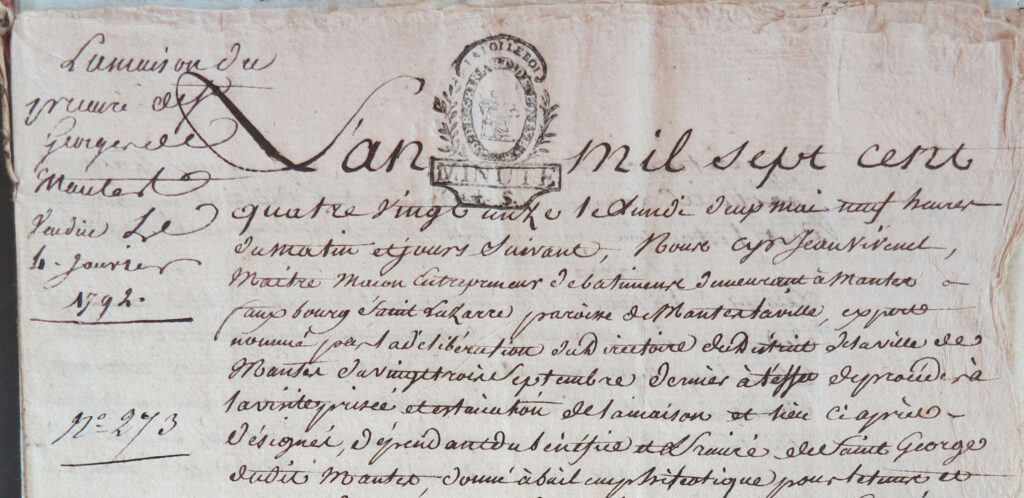 La maison du
prieuré de St
George de
Mantes
Vendue Le
4. Janvier
1792.
N.º 273
LA LOI LE ROI
MINUTE
4. S.
L'an mil sept cent
quatre vingt onze le Lundi deux mai neuf heures
du matin et jours Suivant, Nous Cyr Jean Vivenel,
Maître Macon Entrepreneur de batimens demeurant à Mantes
faux bourg Saint Lazarre paroisse de Mantes laville, expert
nommé par la délibération du Directoire du District de la ville de
Mantes du vingt trois Septembre dernier à l'effet de procéder à
la visite prisée et estimation de la maison et lieu ci après
désignés, dépendant du bénéfice et Prieuré de Saint George
dudit Mantes, donné à bail emphitéotique pour le tems et